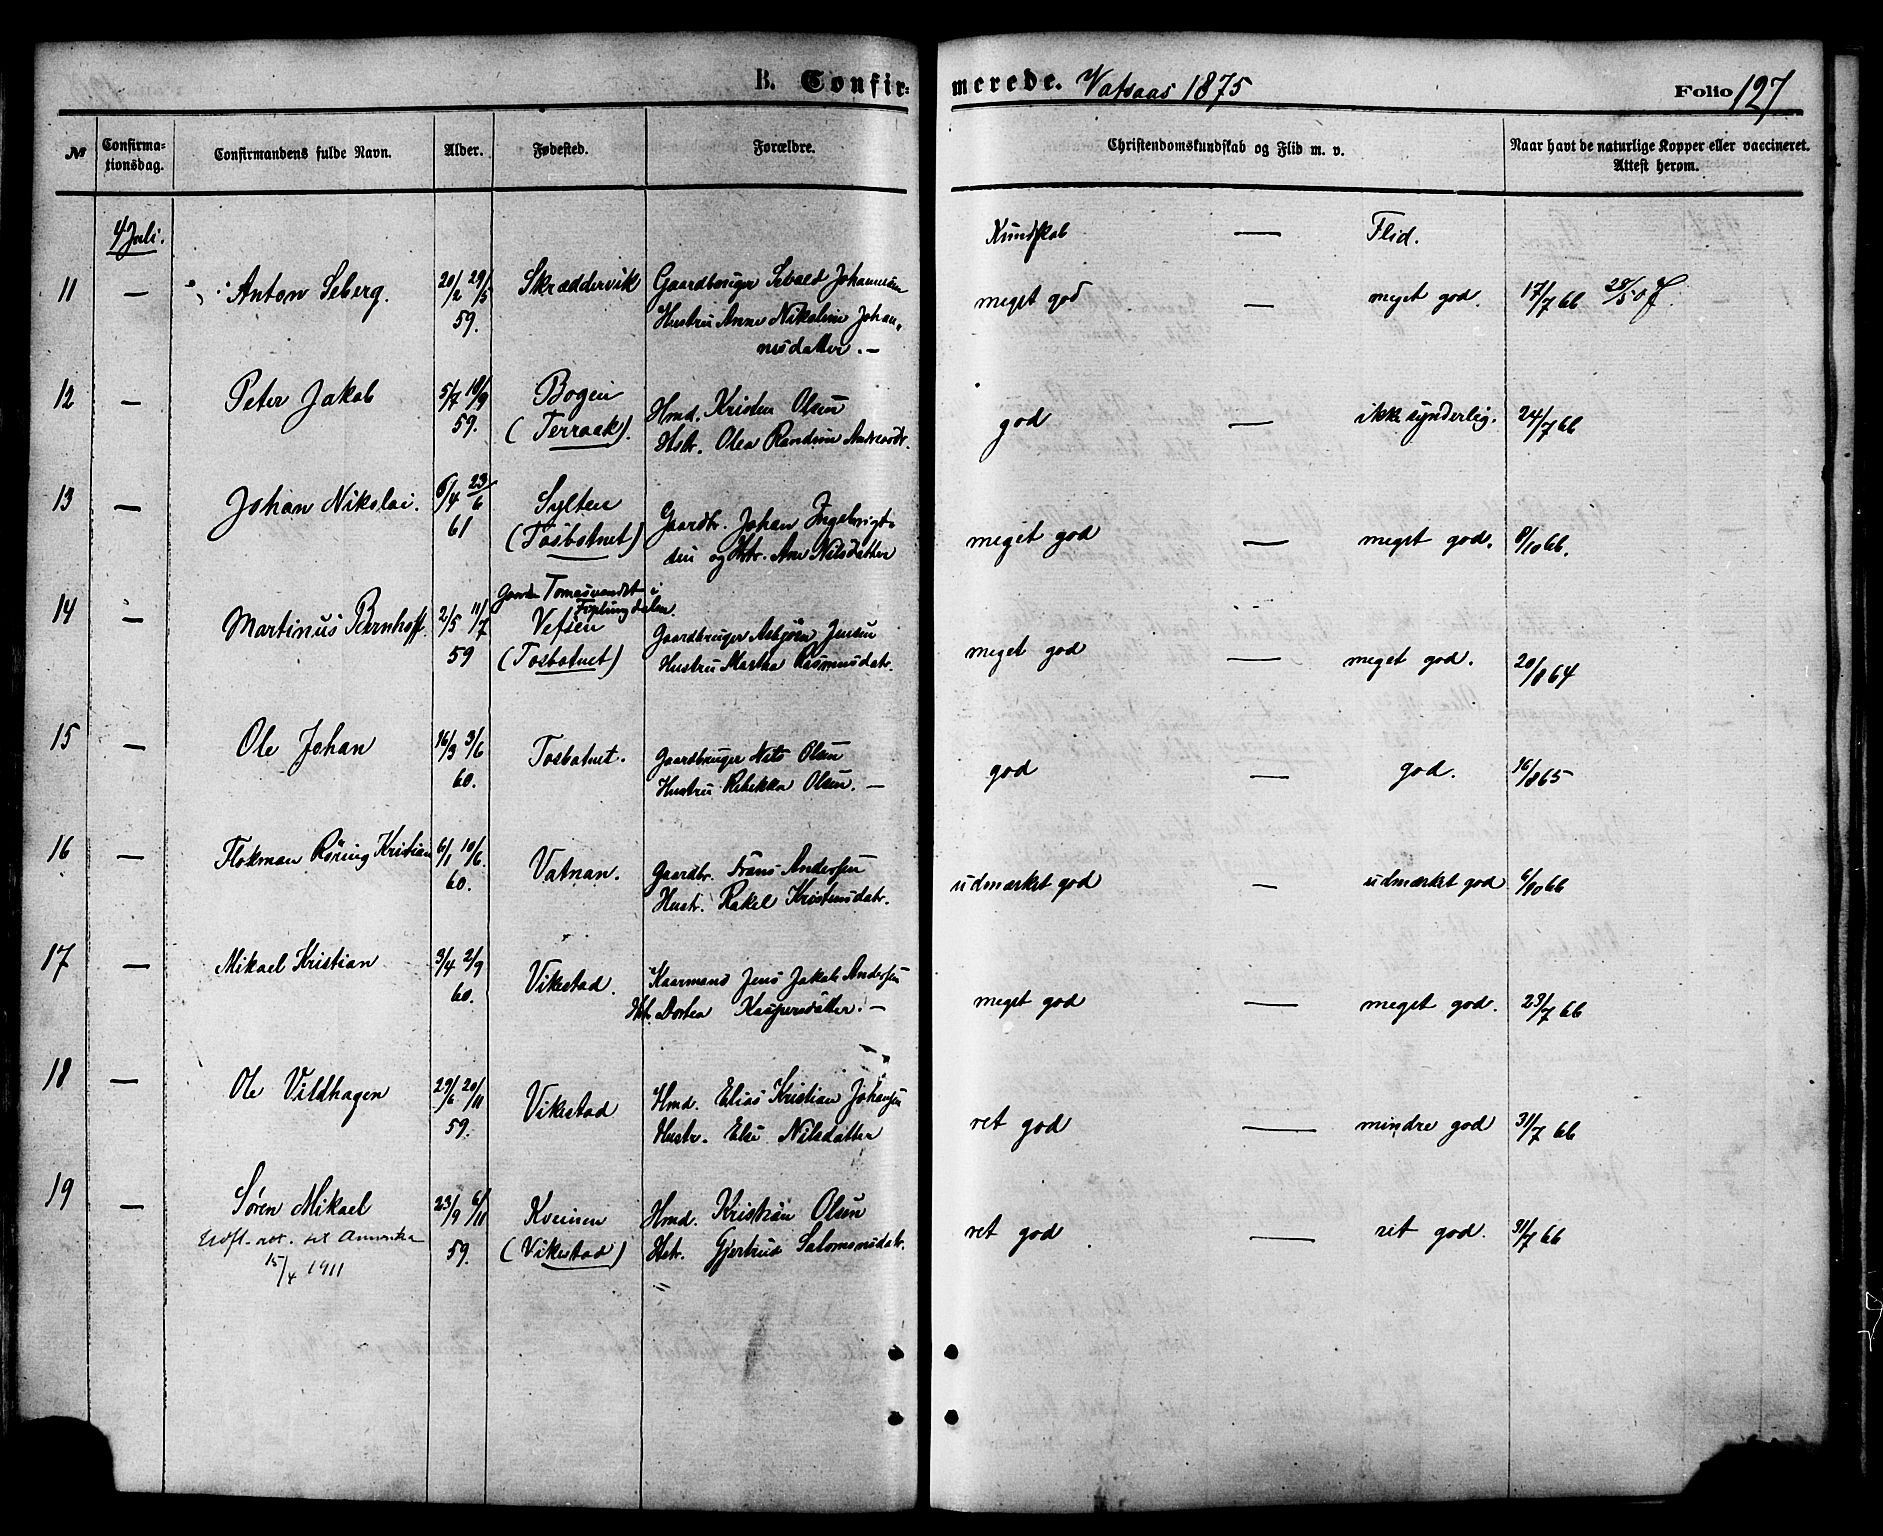 B. Confir-
merede. Vatsaas 1875
Folio 127
№ Confirma-
tionsdag. Confirmandens fulde Navn. Alder. Fødested. Forældre. Christendomskundskab og Flid m. v. Naar havt de naturlige Kopper eller vaccineret.
Attest herom.
4 Juli. Kundskab — Flid.
11 — Anton Seberg. 20/2 29/5 Skræddervik Gaardbruger Sebald Johannesen meget god — meget god. 17/7 66 28/5 0
59. Hustru Anne Nikoline Johan-
nesdatter. —
12 — Peter Jakob 5/7 18/9 Bogen Hmd. Kristen Olsen god — ikke synderlig. 24/7 66
59. (Terraak). Hstr. Olea Randine
13 — Johan Nikolai. 6/4 23/6 Sylten Gaardbr. Johan Ingebrigt- meget god — meget god. 8/10 66.
61 (Tosbotnet) sen og Hstr. Ane Nilsdatter
Tomasvandet i
Fiplingdalen.
14 — Martinus Bernhoff. 2/5 11/7 Vefsen Gaardbruger Asbjørn Jensen meget god — meget god. 20/8 64
59 (Tosbotnet) Hustru Martha Rasmusdatr.
15 — Ole Johan 16/3 3/6 Tosbotnet. Gaardbruger Nils Olsen god — god. 16/8 65
60. Hustru Rebekka Olsen. —
16 — Flokman Røring Kristian 6/1 10/6 Vatnan. Gaardbr. Frans Andersen udmærket god — udmærket god 6/10 66
60. Hustr. Rakel Kristensdatr.
17 — Mikael Kristian 3/4 2/9 Vikestad. Kaarmand Jens Jakob Andersen meget god — meget god. 23/7 66
60. Hst. Dortea Kaspersdatter. —
18 — Ole Vildhagen 29/6 20/11 Vikestad Hmd. Elias Kristian Johansen ret god — mindre god 31/7 66
59. Hustr. Else Nilsdatter
19 — Søren Mikael 23/9 6/11 Kveinen Hmd. Kristian Olsen ret god — ret god. 31/7 66
Udft. att. til Amerika 59. (Vikestad) Hstr. Gjertrud Salomonsdatr.
15/4 1911